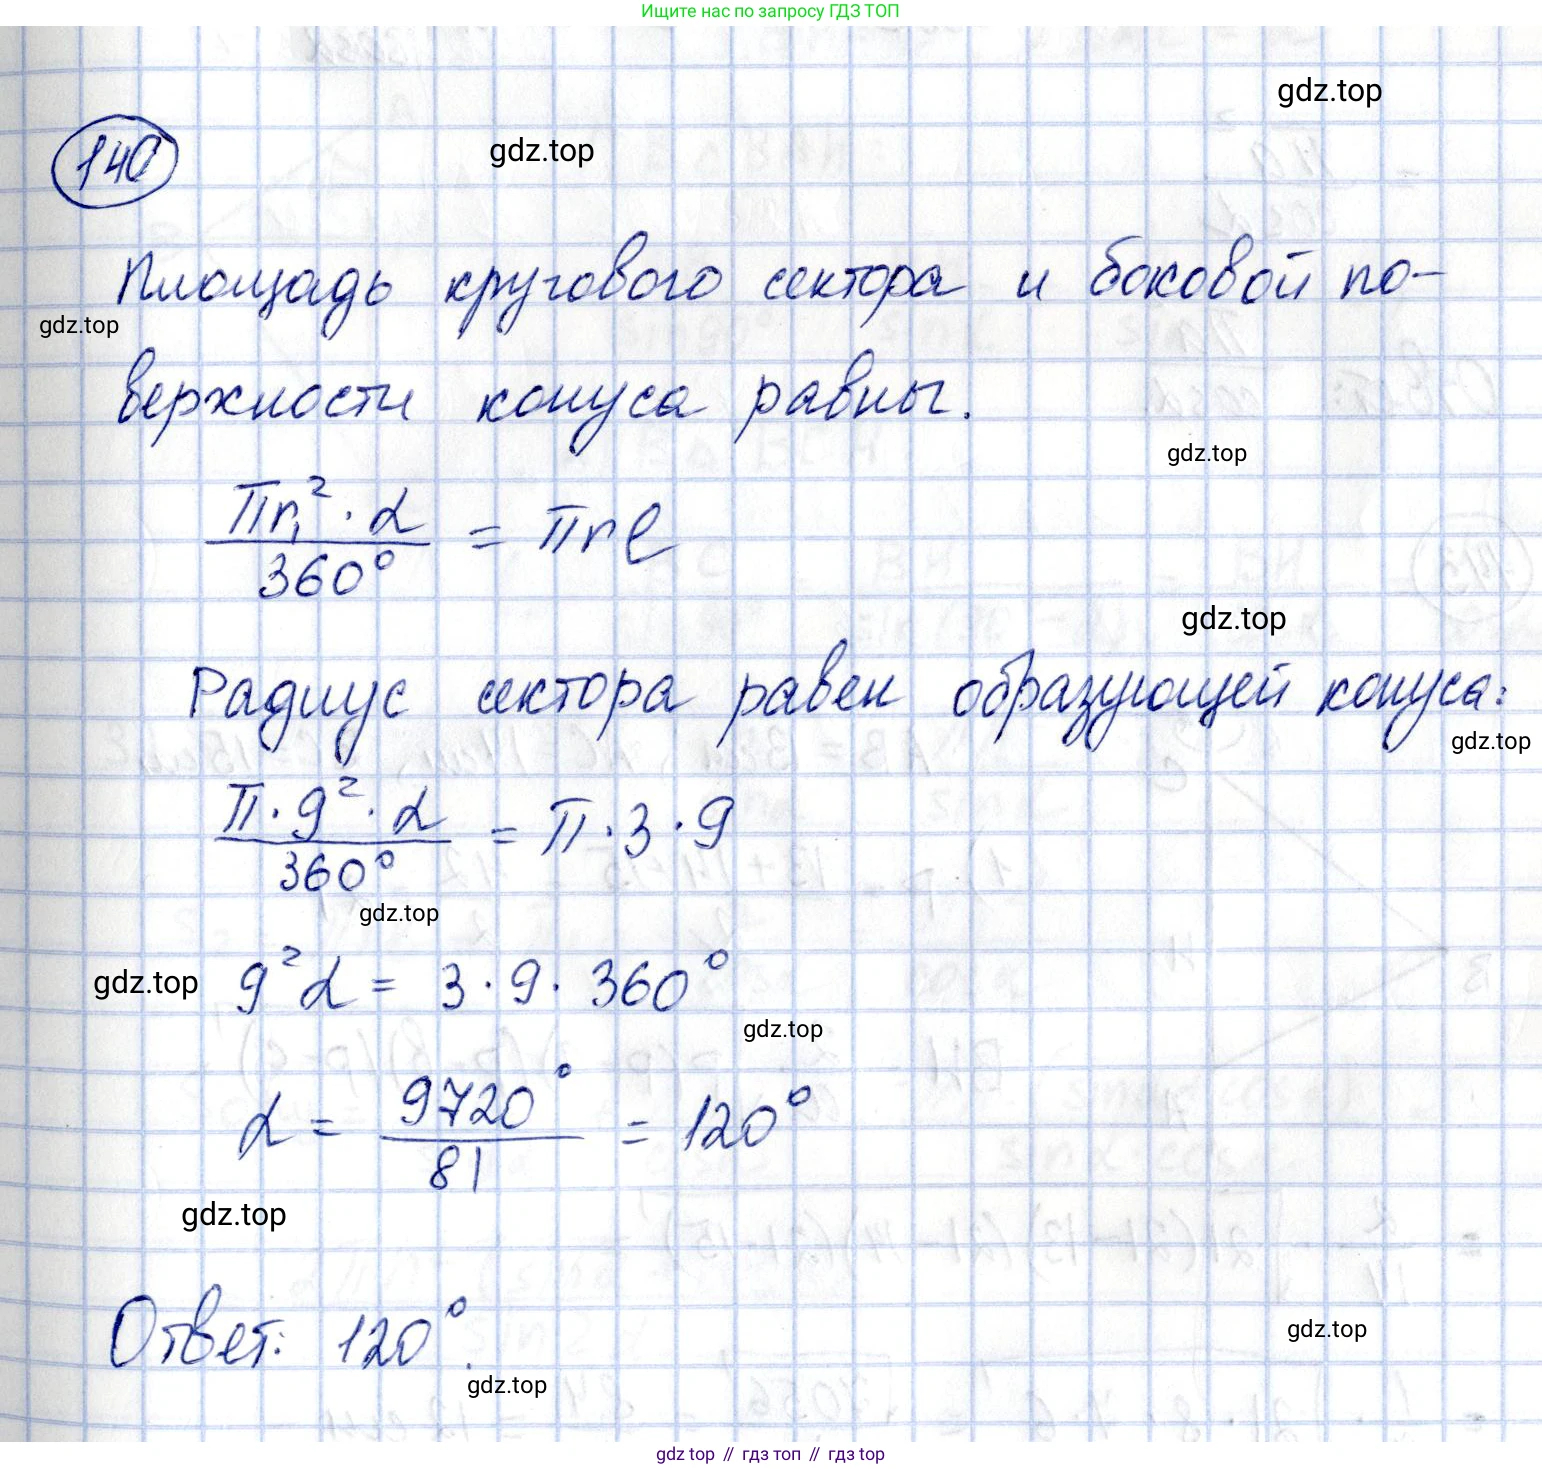 Ищите нас по запросу ГДЗ ТОП
gdz.top
140
gdz.top
Площадь кругового сектора и боковой по-
gdz.top
верхности конуса равны.
gdz.top
πr₁² · α / 360° = πrl
gdz.top
Радиус сектора равен образующей конуса:
gdz.top
π · 9² · α / 360° = π · 3 · 9
gdz.top
gdz.top
9²α = 3 · 9 · 360°
gdz.top
α = 9720° / 81 = 120°
gdz.top
Ответ: 120°.
gdz.top
gdz.top
gdz top // гдз топ // гдз top